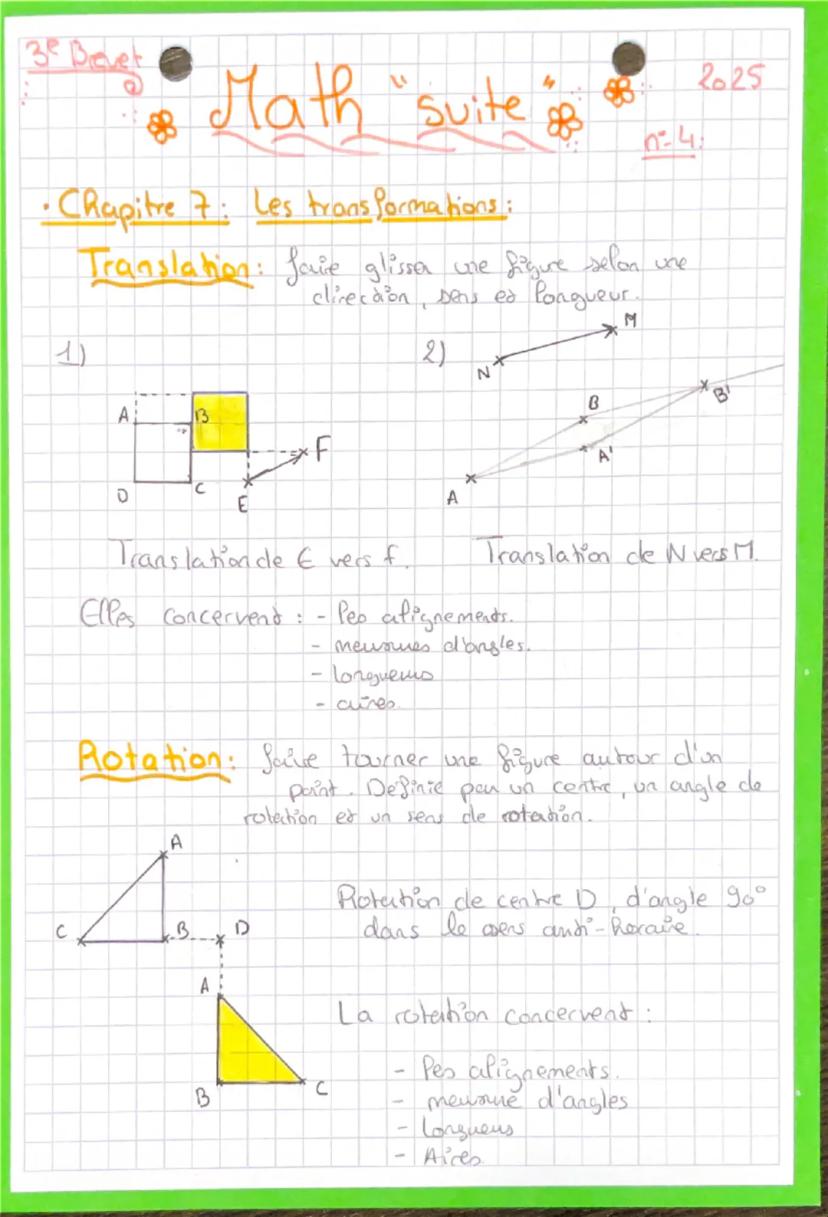 3e Brevet
Math "suite"
2025
n° 4:
• Chapitre 7: Les transformations:
Translation: faire glisser une figure selon une
direction, sens et longueur.
1)
2)
A
B
D
C
E
F
N
M
A
B
A'
B'
Translation de E vers f.
Translation de N vers M.
Elles concervent : - les alignements.
- mesures d'angles.
- longueurs
- aires.
Rotation: faire tourner une figure autour d'un
point. Definie par un centre, un angle de
rotation et un sens de rotation.
A
C
B
D
A
B
C
Rotation de centre D, d'angle 90°
dans le sens anti-horaire.
La rotation concervent :
- les alignements.
- mesure d'angles
- Longueurs
- Aires.